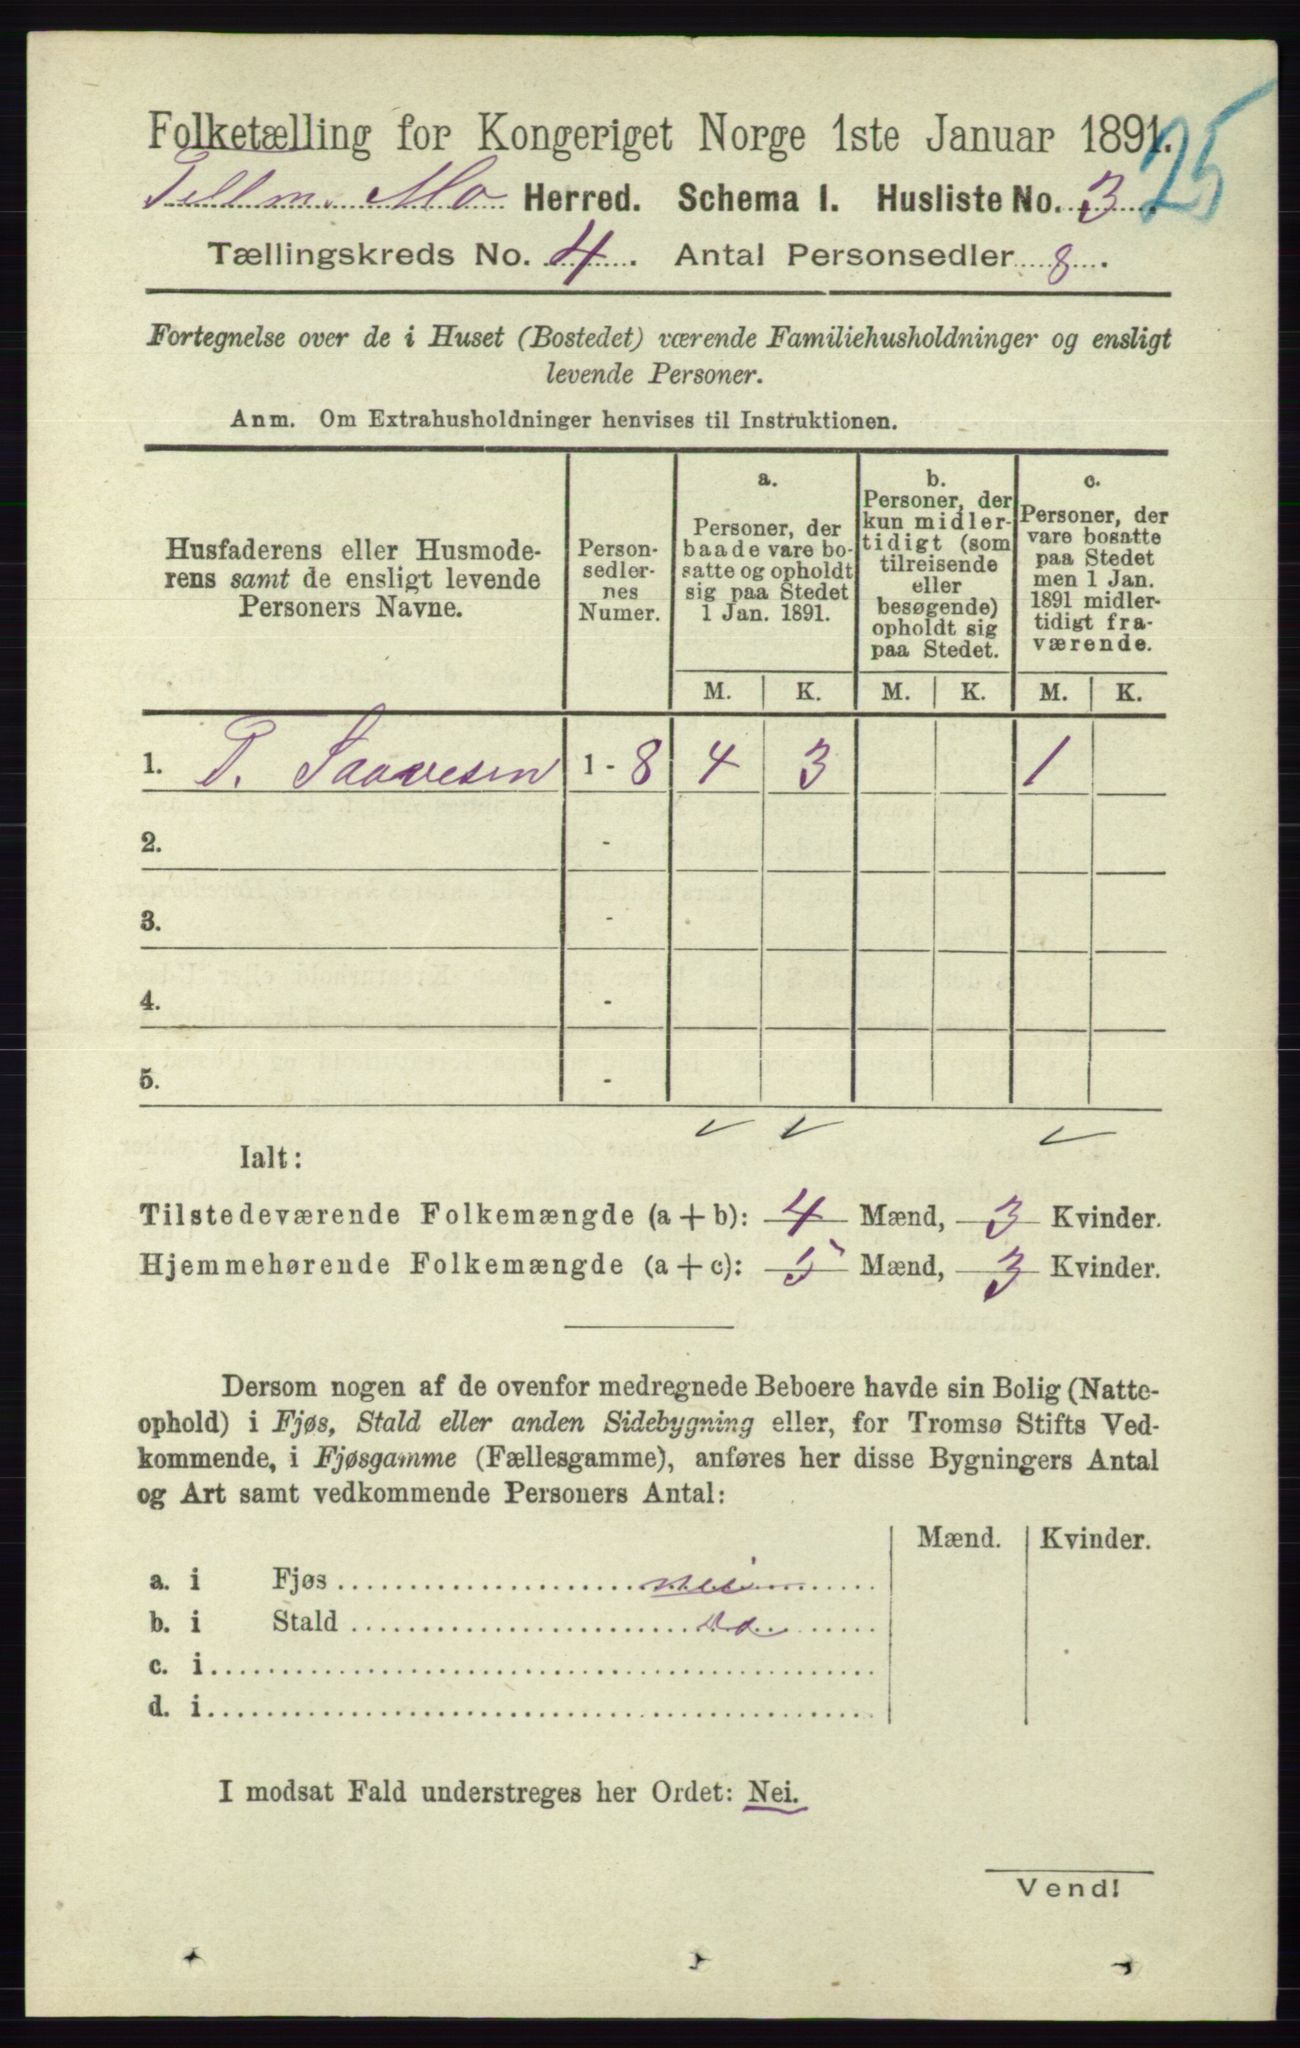 Folketælling for Kongeriget Norge 1ste Januar 1891.
25
Mo Herred. Schema I. Husliste No. 3.
Tællingskreds No. 4. Antal Personsedler 8.
Fortegnelse over de i Huset (Bostedet) værende Familiehusholdninger og ensligt
levende Personer.
Anm. Om Extrahusholdninger henvises til Instruktionen.
Husfaderens eller Husmode-
rens samt de ensligt levende
Personers Navne.
Person-
sedler-
nes
Numer.
a.
Personer, der
baade vare bo-
satte og opholdt
sig paa Stedet
1 Jan. 1891.
b.
Personer, der
kun midler-
tidigt (som
tilreisende
eller
besøgende)
opholdt sig
paa Stedet.
c.
Personer, der
vare bosatte
paa Stedet
men 1 Jan.
1891 midler-
tidigt fra-
værende.
M. K. M. K. M. K.
1. T. Saavesen 1 - 8 4 3 1
2. -
3. -
4. -
5. -
Ialt:
Tilstedeværende Folkemængde (a + b): 4 Mænd, 3 Kvinder.
Hjemmehørende Folkemængde (a + c): 5 Mænd, 3 Kvinder.
Dersom nogen af de ovenfor medregnede Beboere havde sin Bolig (Natte-
ophold) i Fjøs, Stald eller anden Sidebygning eller, for Tromsø Stifts Ved-
kommende, i Fjøsgamme (Fællesgamme), anføres her disse Bygningers Antal
og Art samt vedkommende Personers Antal:
Mænd. Kvinder.
a. i Fjøs nei
b. i Stald do
c. i
d. i
I modsat Fald understreges her Ordet: Nei.
Vend!